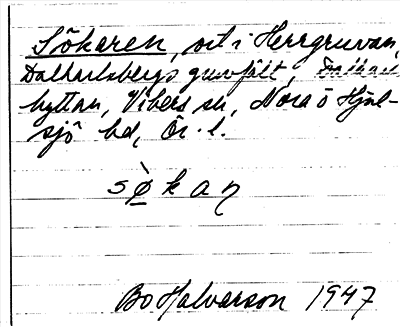 Sökaren, ort i Herrgruvan,
Dalkarlsbergs gruvfält, Dalkarls-
hyttan, Vikers sn, Nora o Hjul-
sjö bd, Ör. l.
sø̀kaɳ
Bo Halvarson 1947